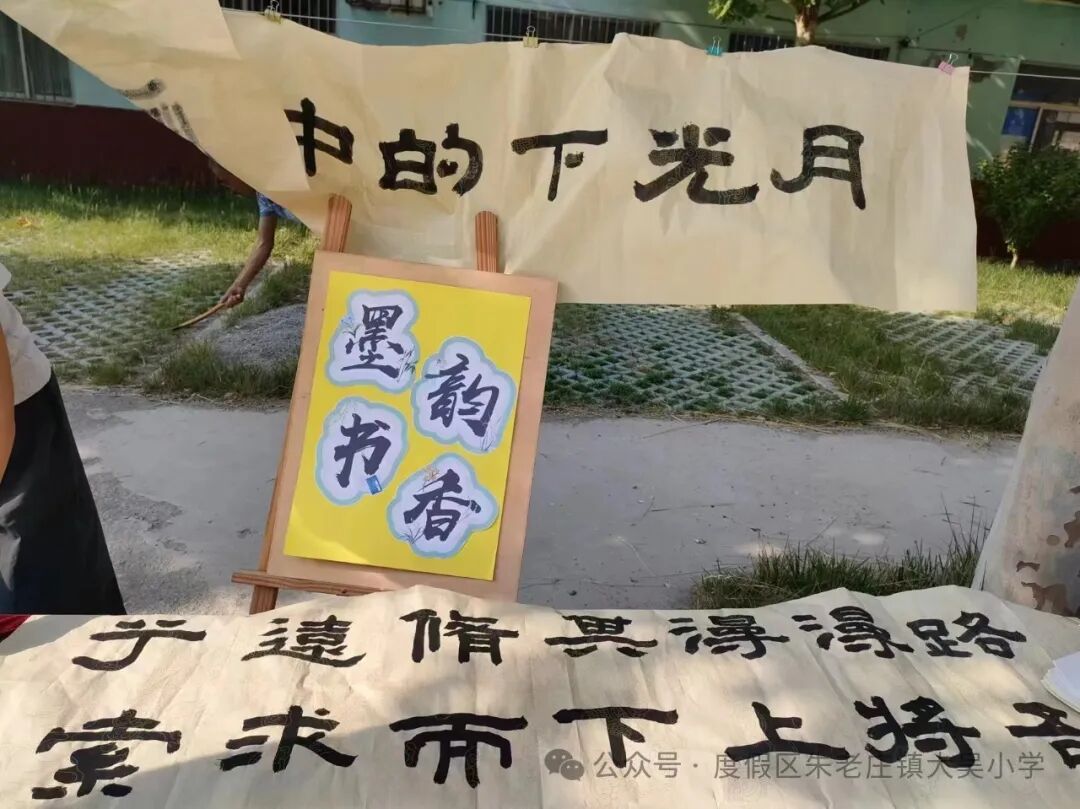 月光下的中
墨韵
书香
路漫漫其脩遠兮
吾将上下而求索
公众号 · 度假区朱老庄镇大吴小学